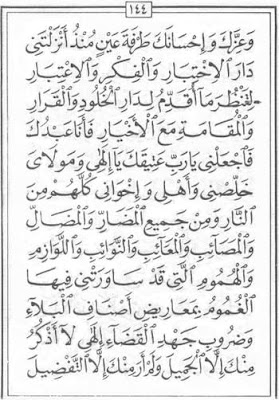 ١٤٤
وَعِزِّكَ وَإِحْسَانِكَ طَرْفَةَ عَيْنٍ مُنْذُ أَنْزَلْتَنِي
دَارَ الْاِخْتِبَارِ وَالْفِكْرِ وَالْاِعْتِبَارِ
لِتَنْظُرَ مَا أُقَدِّمُ لِدَارِ الْخُلُودِ وَالْقَرَارِ
وَالْمُقَامَةِ مَعَ الْأَخْيَارِ فَأَنَا عَبْدُكَ
فَاجْعَلْنِي يَا رَبِّ عَتِيقَكَ يَا إِلٰهِي وَمَوْلَايَ
خَلِّصْنِي وَأَهْلِي وَإِخْوَانِي كُلَّهُمْ مِنَ
النَّارِ وَمِنْ جَمِيعِ الْمَضَارِّ وَالْمَضَالِّ
وَالْمَصَائِبِ وَالْمَعَائِبِ وَالنَّوَائِبِ وَاللَّوَازِمِ
وَالْهُمُومِ الَّتِي قَدْ سَاوَرَتْنِي فِيهَا
الْغُمُومُ بِمَعَارِيضِ أَصْنَافِ الْبَلَاءِ
وَضُرُوبِ جَهْدِ الْقَضَاءِ إِلٰهِي لَا أَذْكُرُ
مِنْكَ إِلَّا الْجَمِيلَ وَلَمْ أَرَ مِنْكَ إِلَّا التَّفْضِيلَ